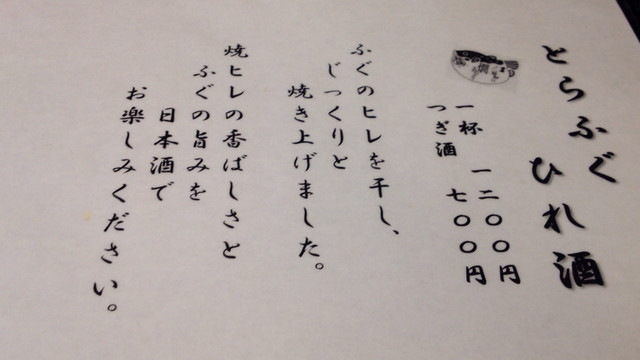 とらふぐ
ひれ酒
一杯 一二〇〇円
つぎ酒 七〇〇円
ふぐのヒレを干し、
じっくりと
焼き上げました。
焼ヒレの香ばしさと
ふぐの旨みを
日本酒で
お楽しみください。